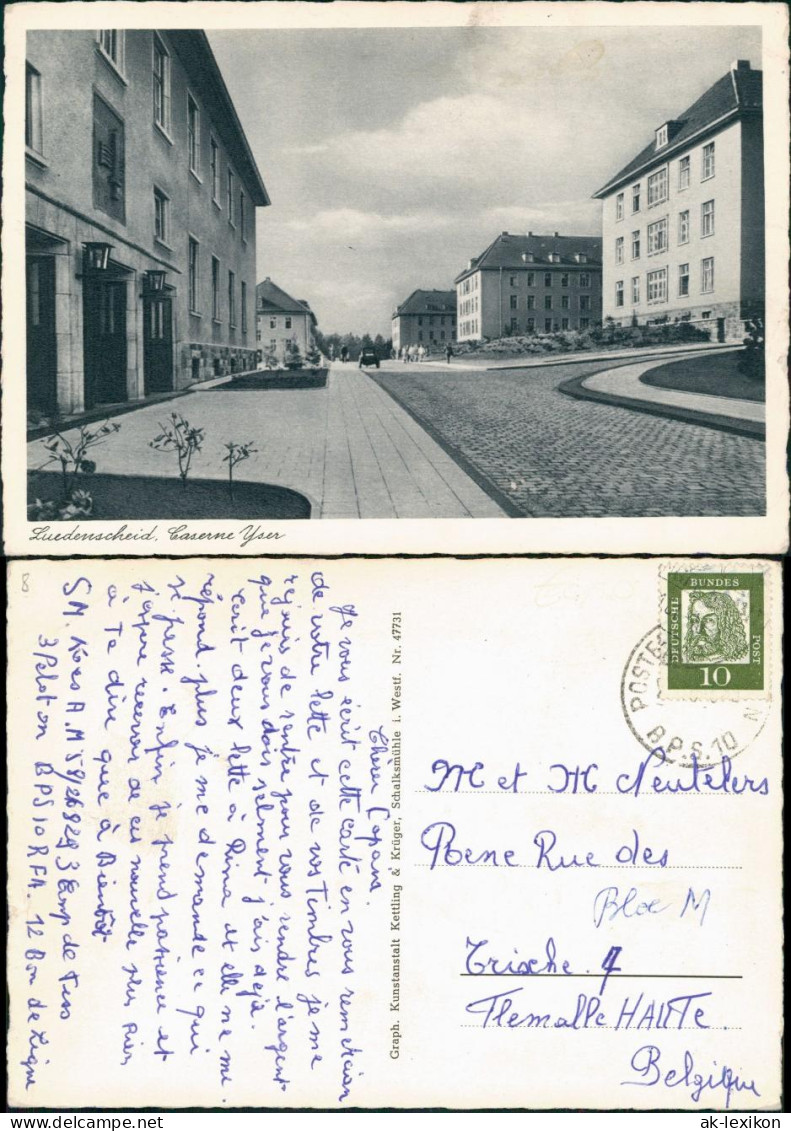 Luedenscheid, Caserne Yser
8
Chèrer Copans.
Je vous écrit cette carte en vous remercian
de votre lette et de vos Timbres je me
rejuis de rentre pour vous rendre l'argent
que je vous dois selment j'ais dejà
écrit deux lette à Rina et elle ne me
répond plus je me demande ce qui
se passe. Enfin je prend patience et
j'espère recevoir de ces nouvelle
à Te dire que à Bientôt
S M. A. M 59/26829 3 Comp de
3 Peloton BPS 10 R.F.A. 12 Bon de Ligne
Graph. Kunstanstalt Kettling & Krüger, Schalksmühle i. Westf. Nr. 47731
DEUTSCHE BUNDES POST
10
B.P.S. 10
M et M Neutelers
Rene Rue des
Bloc M
Trixhe. 7
Flemalle HAUTe.
Belgique
ak-lexikon